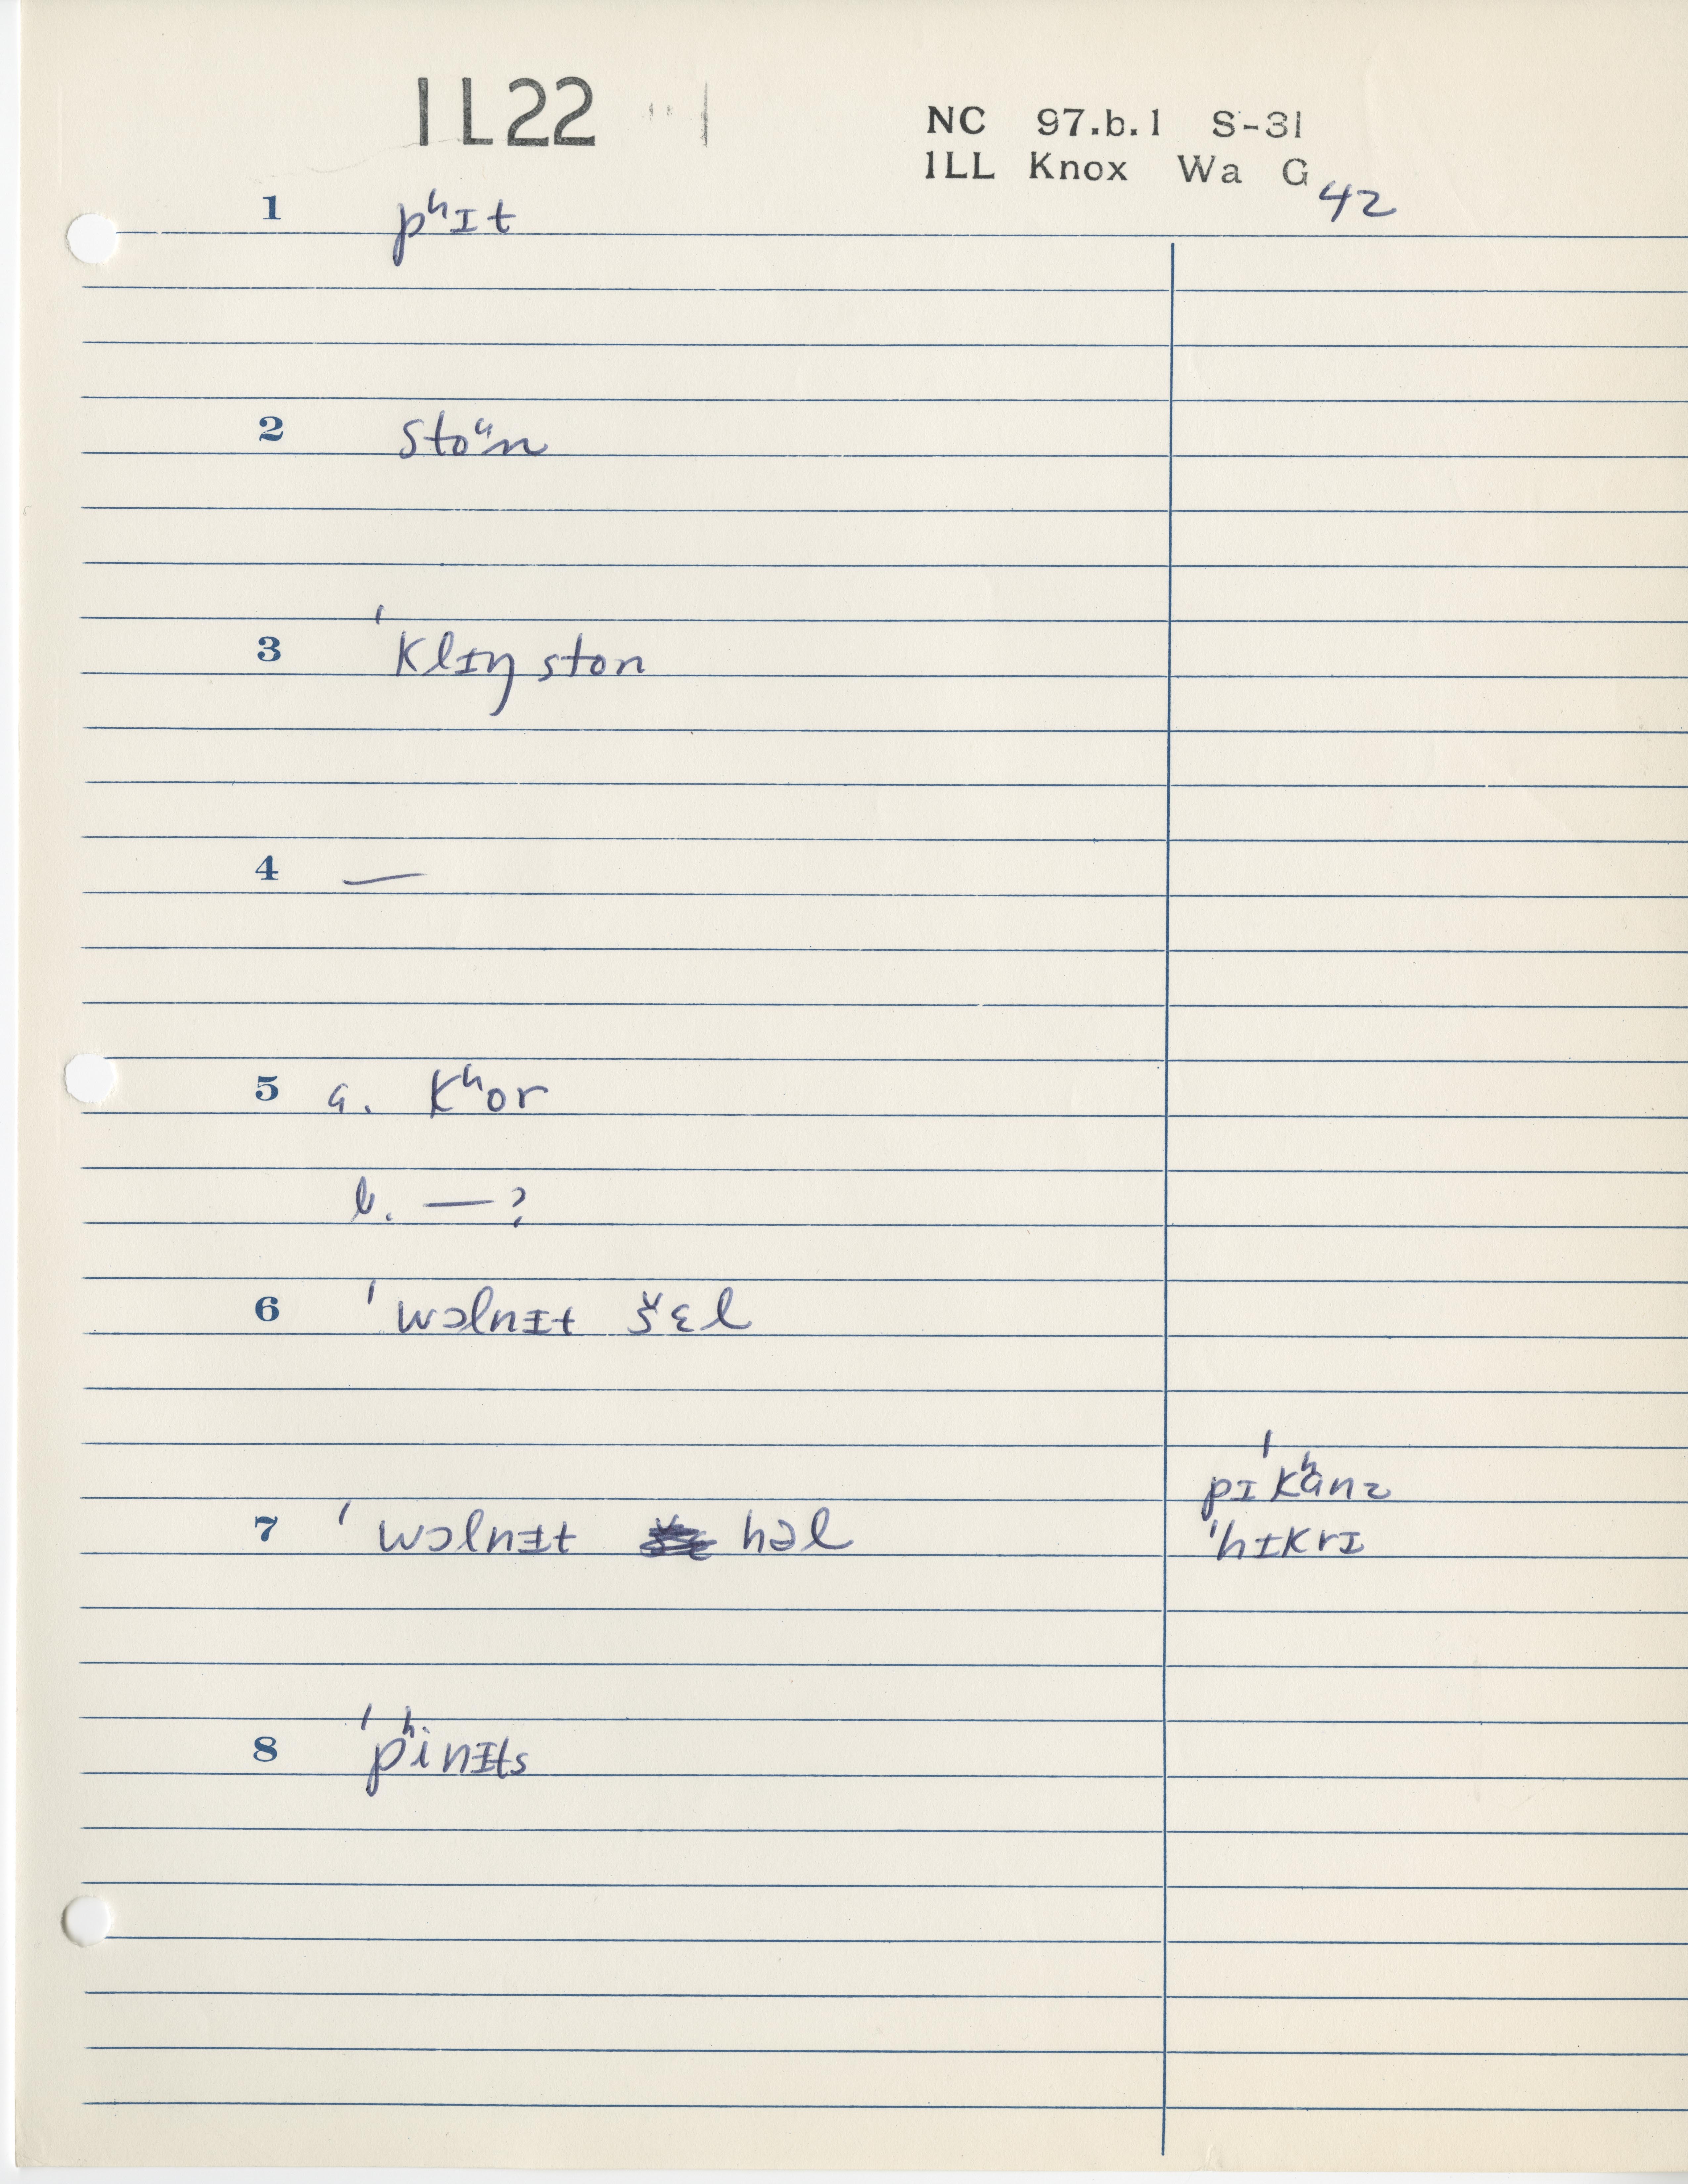 IL22
NC 97.b.1 S-31
ILL Knox Wa G 42
1 pʰɪt
2 stoᵘn
3 ˈklɪŋ ston
4 —
5 a. kʰor
b. — ?
6 ˈwɔlnɪt šɛl
pɪˈkʰanz
7 ˈwɔlnɪt həl ˈhɪkrɪ
8 ˈpʰinɪts